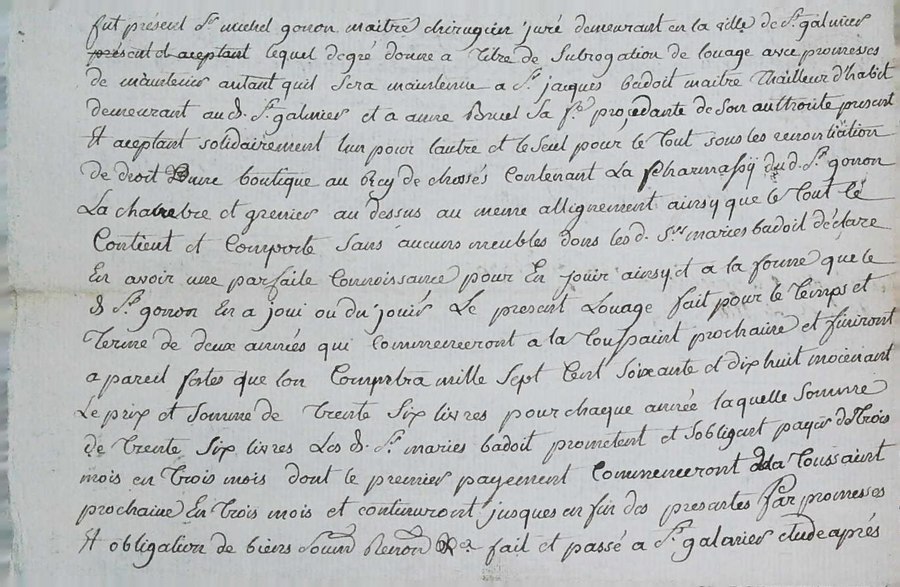 fut présent Sr michel gonon maitre chirugien juré demeurant en la ville de St galmier
présent et aceptant lequel de gré donne a titre de Subrogation de louage avec promesses
de maintenir autant quil Sera maintenue a Sr jacques badoit maitre Thailleur d'habit
demeurant aud. St galmier et a anne Bruel Sa fe procedante de Son authroité present
et aceptant solidairement lun pour lautre et le seul pour le tout sous les renontiation
de droit une boutique au Rey de chossés Contenant La Pharmassÿ dud. Sr gonon
La chambre et grenier au dessus au meme allignement ainsy que le tout le
Contient et Comporte Sans aucuns meubles dons les d. Srs maries badoit déclare
En avoir une parfaite Connoissance pour En jouir ainsy et a la forme que le
d. Sr gonon En a joui ou du jouir Le present Louage fait pour le temps et
Terme de deux années qui Commenceront a la toussaint prochaine et finiront
a pareil fettes que lon Comptra mille Sept Cent Soixante et dix huit moienant
Le prix et Somme de trente Six livres pour chaque année laquelle Somme
de trente Six livres Les d. Sr maries badoit promettent et Sobligent payer de trois
mois en trois mois dont le premier payement Commenceront a la toussaint
prochaine En trois mois et continuront jusques en fin des presantes Par promesses
et obligation de biens Soum Renon &a fait et passé a St galmier etude après